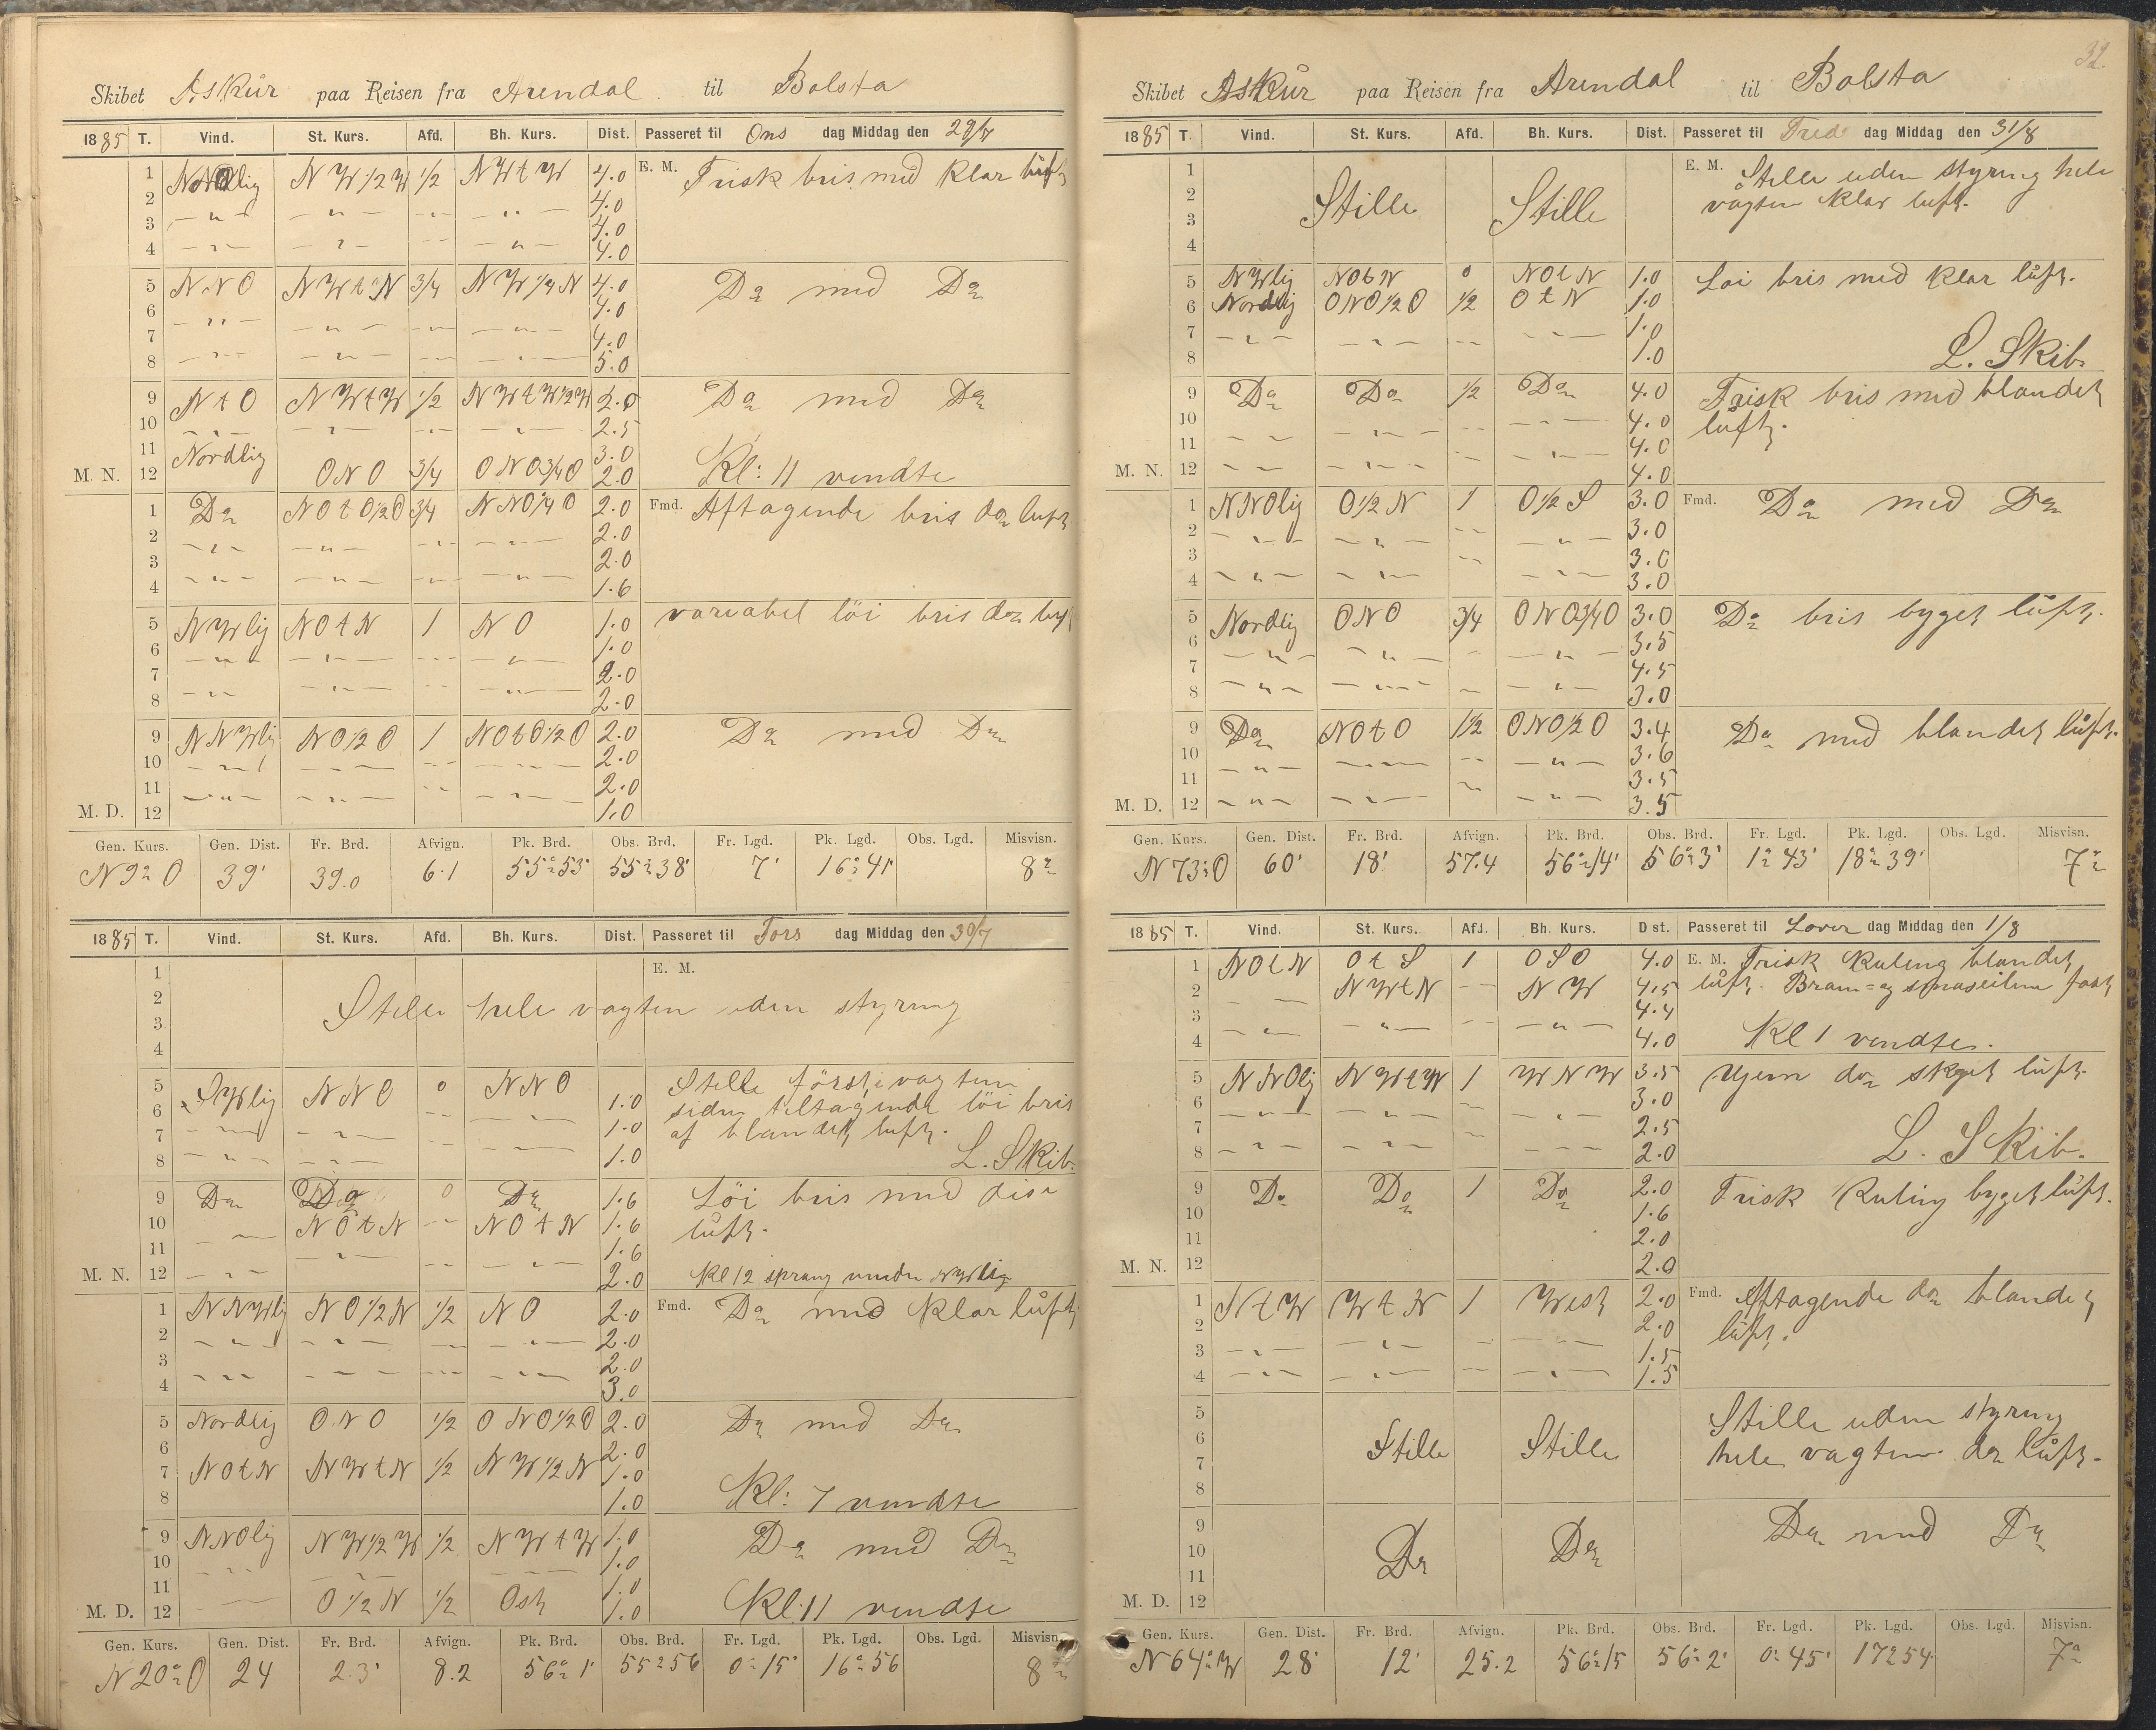 Skibet Askür paa Reisen fra Arendal til Bolsta
1885 T. Vind. St. Kurs. Afd. Bh. Kurs. Dist. Passeret til Ons dag Middag den 29/7
1 Nordlig N W 1/2 W 1/2 N W t W 4.0 E. M. Frisk bris med klar luft
2 — " — — " — — " — — " — 4.0
3 4.0
4 — " — — " — — " — — " — 4.0
5 N N O N W t N 3/4 N W 1/4 N 4.0 Do med Do
6 — " — 4.0
7 — " — — " — — " — 4.0
8 — " — — " — — " — — " — 5.0
9 N t O N W t W 1/2 N W t W 1/2 W 2.5 Do med Do
10 — " — — " — — " — — " — 2.5
11 Nordlig 3.0
M. N. 12 O N O 3/4 O N O 3/4 O 2.0 Kl: 11 vendte
1 Do N O t O 1/2 O 3/4 N N O 1/4 O 2.0 Fmd. Aftagende bris do luft
2 — " — — " — — " — — " — 2.0
3 2.0
4 — " — — " — — " — — " — 1.6
5 N W lig N O t N 1 N O 1.0 variabel löi bris do luft
6 — " — — " — — " — — " — 1.0
7 2.0
8 — " — — " — — " — — " — 2.0
9 N N W lig N O 1/2 O 1 N O t O 1/2 O 2.0 Do med Do
10 — " — — " — — " — — " — 2.0
11 2.0
M. D. 12 — " — — " — — " — — " — 1.0
Gen. Kurs. Gen. Dist. Fr. Brd. Afvign. Pk. Brd. Obs. Brd. Fr. Lgd. Pk. Lgd. Obs. Lgd. Misvisn.
N 9° O 39' 39.0 6.1 55° 53' 55° 38' 7' 16° 41' 8°
1885 T. Vind. St. Kurs. Afd. Bh. Kurs. Dist. Passeret til Tors dag Middag den 30/7
1 E. M.
2 Stille hele vagten uden styring
3
4
5 S W lig N N O 0 N N O Stille först i vagten
6 — " — 1.0 siden tiltagende löi bris
7 — " — — " — — " — 1.0 af blandet luft.
8 — " — — " — 1.0 L. Skib.
9 Do Do 0 Do 1.6 Löi bris med dis
10 N O t N — " — N O t N 1.6 luft.
11 — " — — " — 1.6
M. N. 12 — " — — " — — " — 2.0 Kl 12 sprang vinden N W lig
1 N N W lig N O 1/2 N 1/2 N O 2.0 Fmd. Do med klar luft
2 — " — — " — — " — — " — 2.0
3 2.0
4 — " — — " — — " — — " — 3.0
5 Nordlig O N O 1/2 O N O 1/2 O 2.0 Do med Do
6 2.0
7 N O t N N W t N 1/2 N W 1/2 N 1.0
8 1.0 Kl: 7 vendte
9 N N O lig N W 1/2 W 1/2 N W t W 1.0 Do med Do
10 — " — 1.0
11 — " — — " — 1.0
M. D. 12 — " — O 1/2 N 1/2 Ost 1.0 Kl. 11 vendte
Gen. Kurs. Gen. Dist. Fr. Brd. Afvign. Pk. Brd. Obs. Brd. Fr. Lgd. Pk. Lgd. Obs. Lgd. Misvisn.
N 20° O 24 2.3' 8.2 56° 1' 55° 56 0° 15' 16° 56 8°
32
Skibet Askür paa Reisen fra Arendal til Bolsta
1885 T. Vind. St. Kurs. Afd. Bh. Kurs. Dist. Passeret til Fred dag Middag den 31/8
1 E. M. Stille uden styring hele
2 Stille Stille vagten klar luft.
3
4
5 N W lig N O t N 0 N O t N 1.0 Löi bris med klar luft.
6 Nordlig O N O 1/2 O 1/2 O t N 1.0
7 — " — — " — — " — — " — 1.0
8 1.0 L. Skib.
9 Do Do 1/2 Do 4.0 Frisk bris med blandet
10 4.0 luft.
11 — " — — " — — " — — " — 4.0
M. N. 12 — " — — " — — " — — " — 4.0
1 N N O lig O 1/2 N 1 O 1/2 S 3.0 Fmd. Do med Do
2 — " — — " — — " — — " — 3.0
3 3.0
4 — " — — " — — " — — " — 3.0
5 Nordlig O N O 3/4 O N O 3/4 O 3.0 Do bris byget luft.
6 — " — — " — — " — — " — 3.5
7 4.5
8 — " — — " — — " — — " — 3.0
9 Do N O t O 1/2 O N O 1/2 O 3.4 Do med blandet luft.
10 — " — — " — — " — — " — 3.6
11 3.5
M. D. 12 — " — — " — — " — — " — 3.5
Gen. Kurs. Gen. Dist. Fr. Brd. Afvign. Pk. Brd. Obs. Brd. Fr. Lgd. Pk. Lgd. Obs. Lgd. Misvisn.
N 73° O 60' 18' 57.4 56° 14' 56° 3' 1° 43' 18° 39' 7°
1885 T. Vind. St. Kurs. Afd. Bh. Kurs. Dist. Passeret til Lover dag Middag den 1/8
1 N O t N O t S 1 O S O 4.0 E. M. Frisk Kuling blandet
2 — " — N W t N — " — N W 4.5 luft. Bram= og smaseilene fast
3 4.4
4 — " — — " — — " — — " — 4.0 Kl 1 vendte.
5 N N O lig N W t W 1 W N W 3.5 Ujevn do skyet luft.
6 — " — — " — — " — 3.0
7 2.5
8 — " — — " — — " — 2.0 L. Skib.
9 Do Do 1 Do 2.0 Frisk Kuling byget luft.
10 1.6
11 2.0
M. N. 12 2.0
1 N t W W t N 1 West 2.0 Fmd. Aftagende do blandet
2 2.0 luft.
3 — " — — " — — " — — " — 1.5
4 — " — — " — — " — — " — 1.5
5 Stille uden styring
6 Stille Stille hele vagten do luft.
7
8
9 Do med Do
10 Do Do
11
M. D. 12
Gen. Kurs. Gen. Dist. Fr. Brd. Afvign. Pk. Brd. Obs. Brd. Fr. Lgd. Pk. Lgd. Obs. Lgd. Misvisn.
N 64° W 28' 12' 25.2 56° 15 56° 2' 0° 45' 17° 54 7°